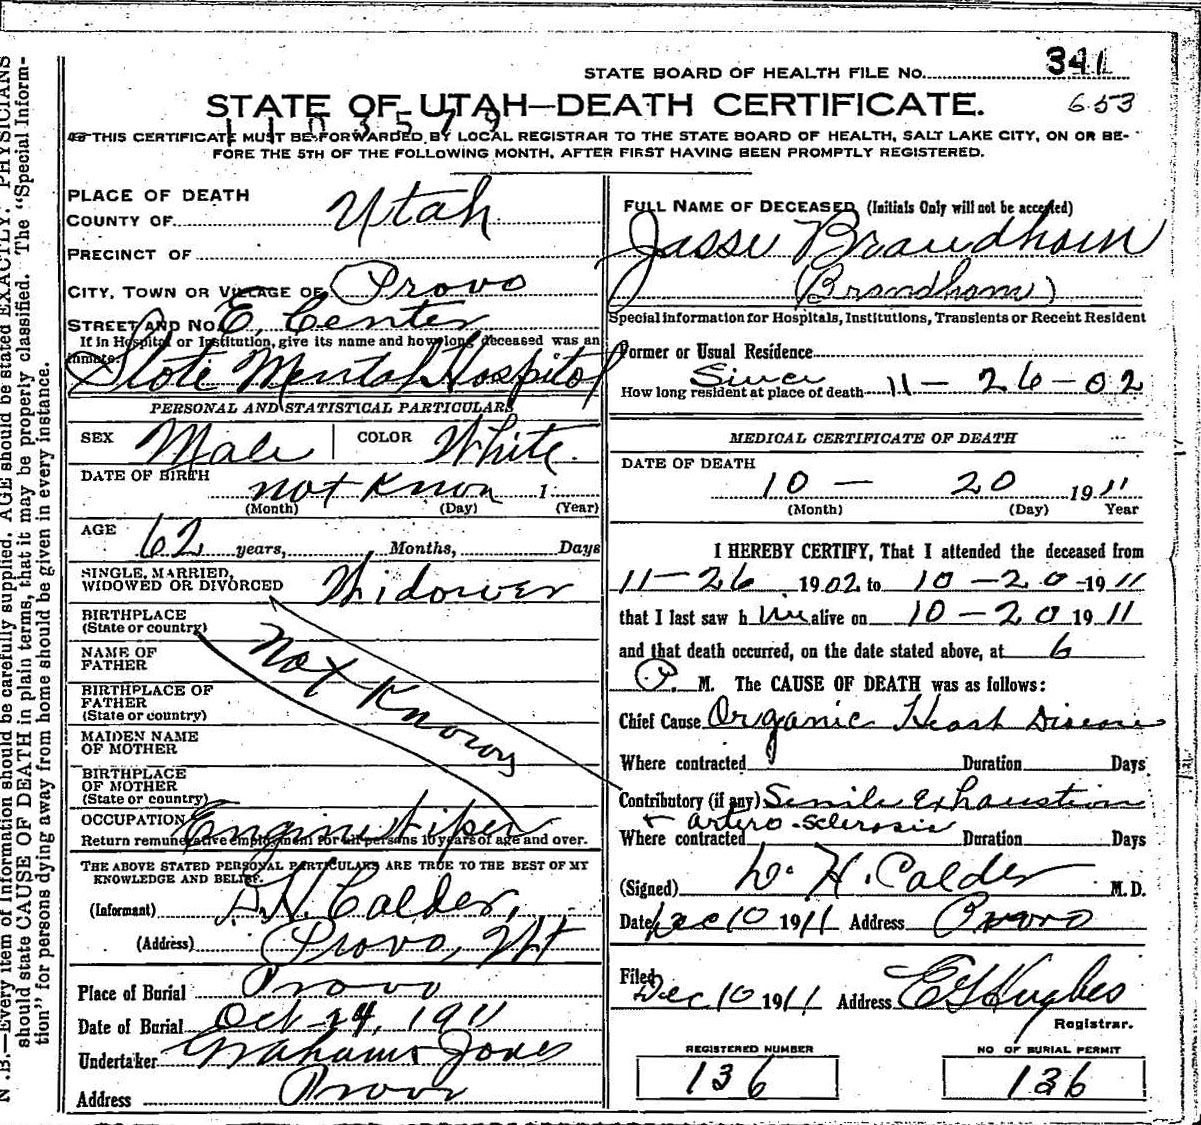 STATE BOARD OF HEALTH FILE No. 341
STATE OF UTAH—DEATH CERTIFICATE. 653
1103579
THIS CERTIFICATE MUST BE FORWARDED BY LOCAL REGISTRAR TO THE STATE BOARD OF HEALTH, SALT LAKE CITY, ON OR BE-
FORE THE 5TH OF THE FOLLOWING MONTH, AFTER FIRST HAVING BEEN PROMPTLY REGISTERED.
N.B.—Every item of information should be carefully supplied. AGE should be stated EXACTLY. PHYSICIANS
should state CAUSE OF DEATH in plain terms, that it may be properly classified. The "Special Inform-
tion" for persons dying away from home should be given in every instance.
PLACE OF DEATH
COUNTY OF Utah
PRECINCT OF
CITY, TOWN OR VILLAGE OF Provo
STREET AND No. E. Center
If in Hospital or Institution, give its name and how long deceased was an
inmate.
State Mental Hospital
PERSONAL AND STATISTICAL PARTICULARS
SEX Male COLOR White.
DATE OF BIRTH not Known 1
(Month) (Day) (Year)
AGE 62 years, Months, Days
SINGLE, MARRIED,
WIDOWED OR DIVORCED Widower
BIRTHPLACE
(State or country)
NAME OF
FATHER
Not Known
BIRTHPLACE OF
FATHER
(State or country)
MAIDEN NAME
OF MOTHER
BIRTHPLACE
OF MOTHER
(State or country)
OCCUPATION Engine
Return remunerative employment for all persons 10 years of age and over.
THE ABOVE STATED PERSONAL PARTICULARS ARE TRUE TO THE BEST OF MY
KNOWLEDGE AND BELIEF.
(Informant) D. H. Calder,
(Address) Provo, Ut
Place of Burial Provo
Date of Burial Oct 24, 1911
Undertaker Graham Jones
Address Provo
FULL NAME OF DECEASED (Initials Only will not be accepted)
Jasse Braudhom
(Brandhom)
Special information for Hospitals, Institutions, Transients or Recent Resident
Former or Usual Residence
How long resident at place of death Since 11-26-02
MEDICAL CERTIFICATE OF DEATH
DATE OF DEATH
10 — 20 1911
(Month) (Day) Year
I HEREBY CERTIFY, That I attended the deceased from
11-26 1902 to 10-20-1911
that I last saw him alive on 10-20 1911
and that death occurred, on the date stated above, at 6
P. M. The CAUSE OF DEATH was as follows:
Chief Cause Organic Heart Disease
Where contracted Duration Days
Contributory (if any) Senile Exhaustion
+ artero-sclerosis
Where contracted Duration Days
(Signed) D. H. Calder M.D.
Date Dec 10 1911 Address Provo
Filed Dec 10 1911 Address E G Hughes
Registrar.
REGISTERED NUMBER
136
NO OF BURIAL PERMIT
136